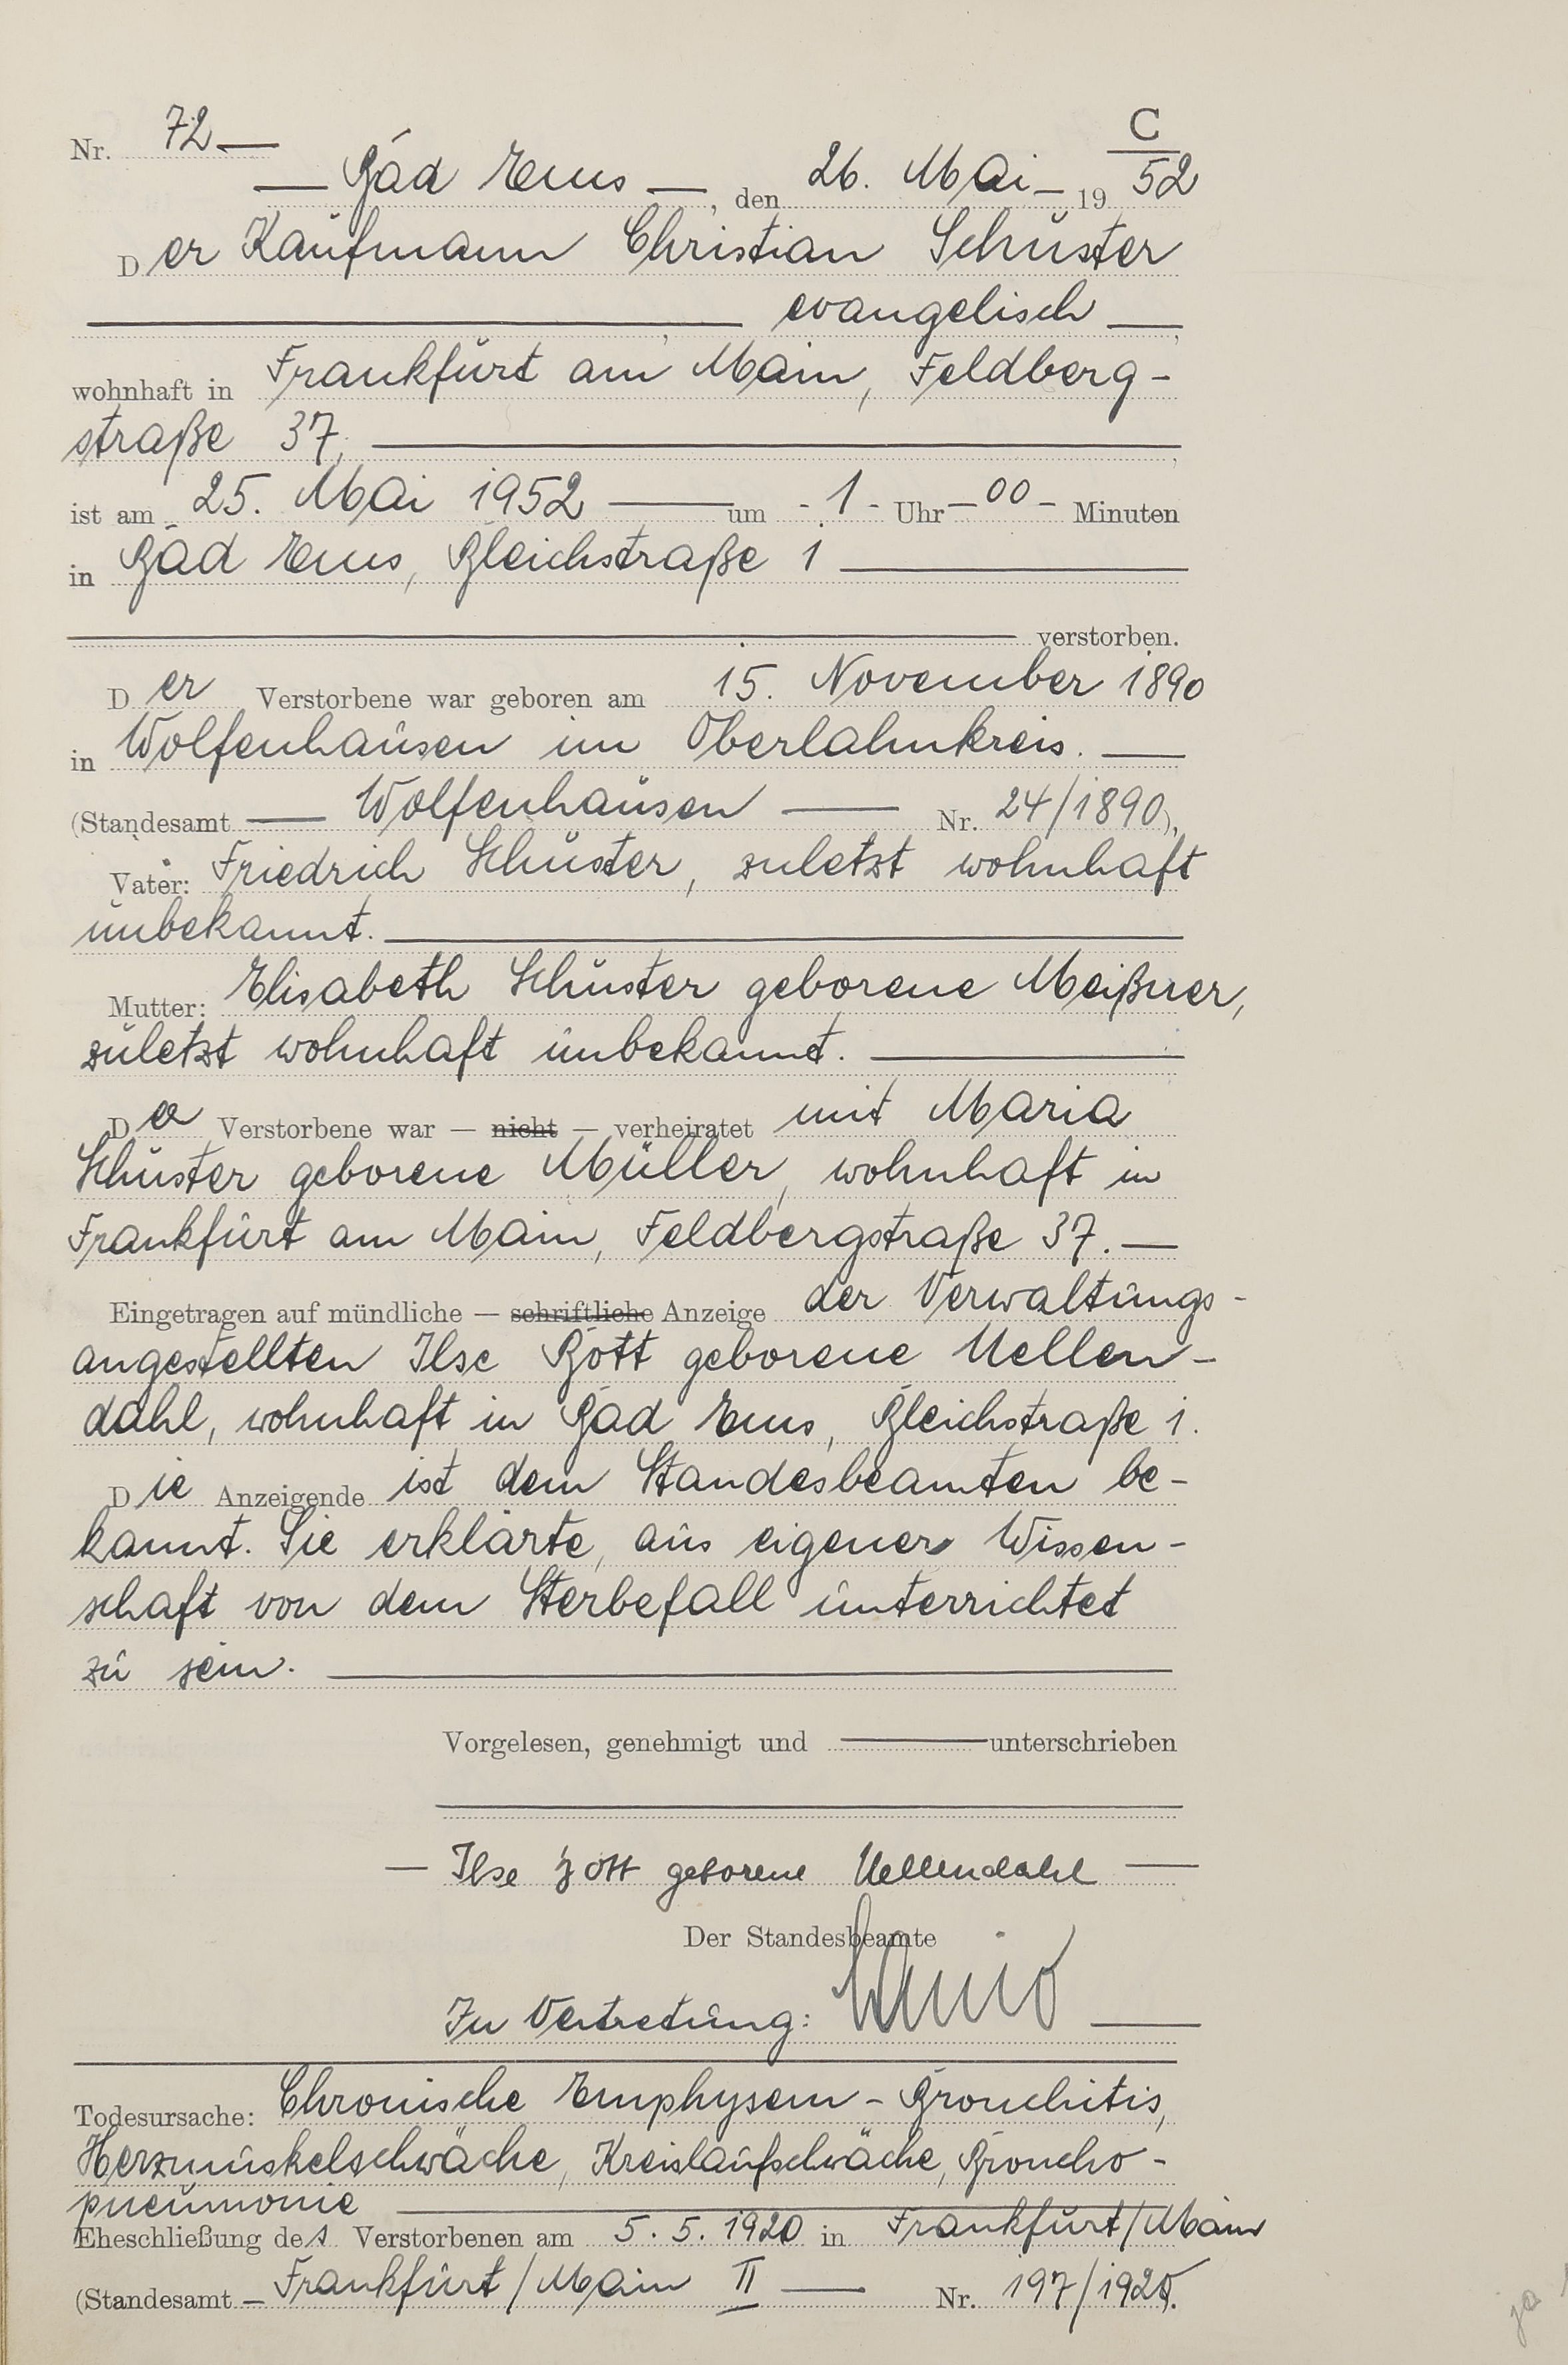 C
Nr. 72 —
— Bad Ems —, den 26. Mai — 19 52
Der Kaufmann Christian Schuster
———, evangelisch —,
wohnhaft in Frankfurt am Main, Feldberg-
straße 37, ———,
ist am 25. Mai 1952 — um - 1 - Uhr — 00 — Minuten
in Bad Ems, Bleichstraße 1 ———
——— verstorben.
Der Verstorbene war geboren am 15. November 1890
in Wolfenhausen im Oberlahnkreis. —
(Standesamt — Wolfenhausen — Nr. 24/1890),
Vater: Friedrich Schuster, zuletzt wohnhaft
unbekannt. ———
Mutter: Elisabeth Schuster geborene Meißner,
zuletzt wohnhaft unbekannt. ———
Der Verstorbene war — nicht — verheiratet mit Maria
Schuster geborene Müller, wohnhaft in
Frankfurt am Main, Feldbergstraße 37. —
Eingetragen auf mündliche — schriftliche Anzeige der Verwaltungs-
angestellten Ilse Bott geborene Uellen-
dahl, wohnhaft in Bad Ems, Bleichstraße 1.
Die Anzeigende ist dem Standesbeamten be-
kannt. Sie erklärte, aus eigener Wissen-
schaft von dem Sterbefall unterrichtet
zu sein. ———
Vorgelesen, genehmigt und ——— unterschrieben
— Ilse Bott geborene Uellendahl —
Der Standesbeamte
In Vertretung:
Todesursache: Chronische Emphysem-Bronchitis,
Herzmuskelschwäche, Kreislaufschwäche, Broncho-
pneumonie ———
Eheschließung des Verstorbenen am 5. 5. 1920 in Frankfurt/Main
(Standesamt — Frankfurt/Main II — Nr. 197/1920).
ja